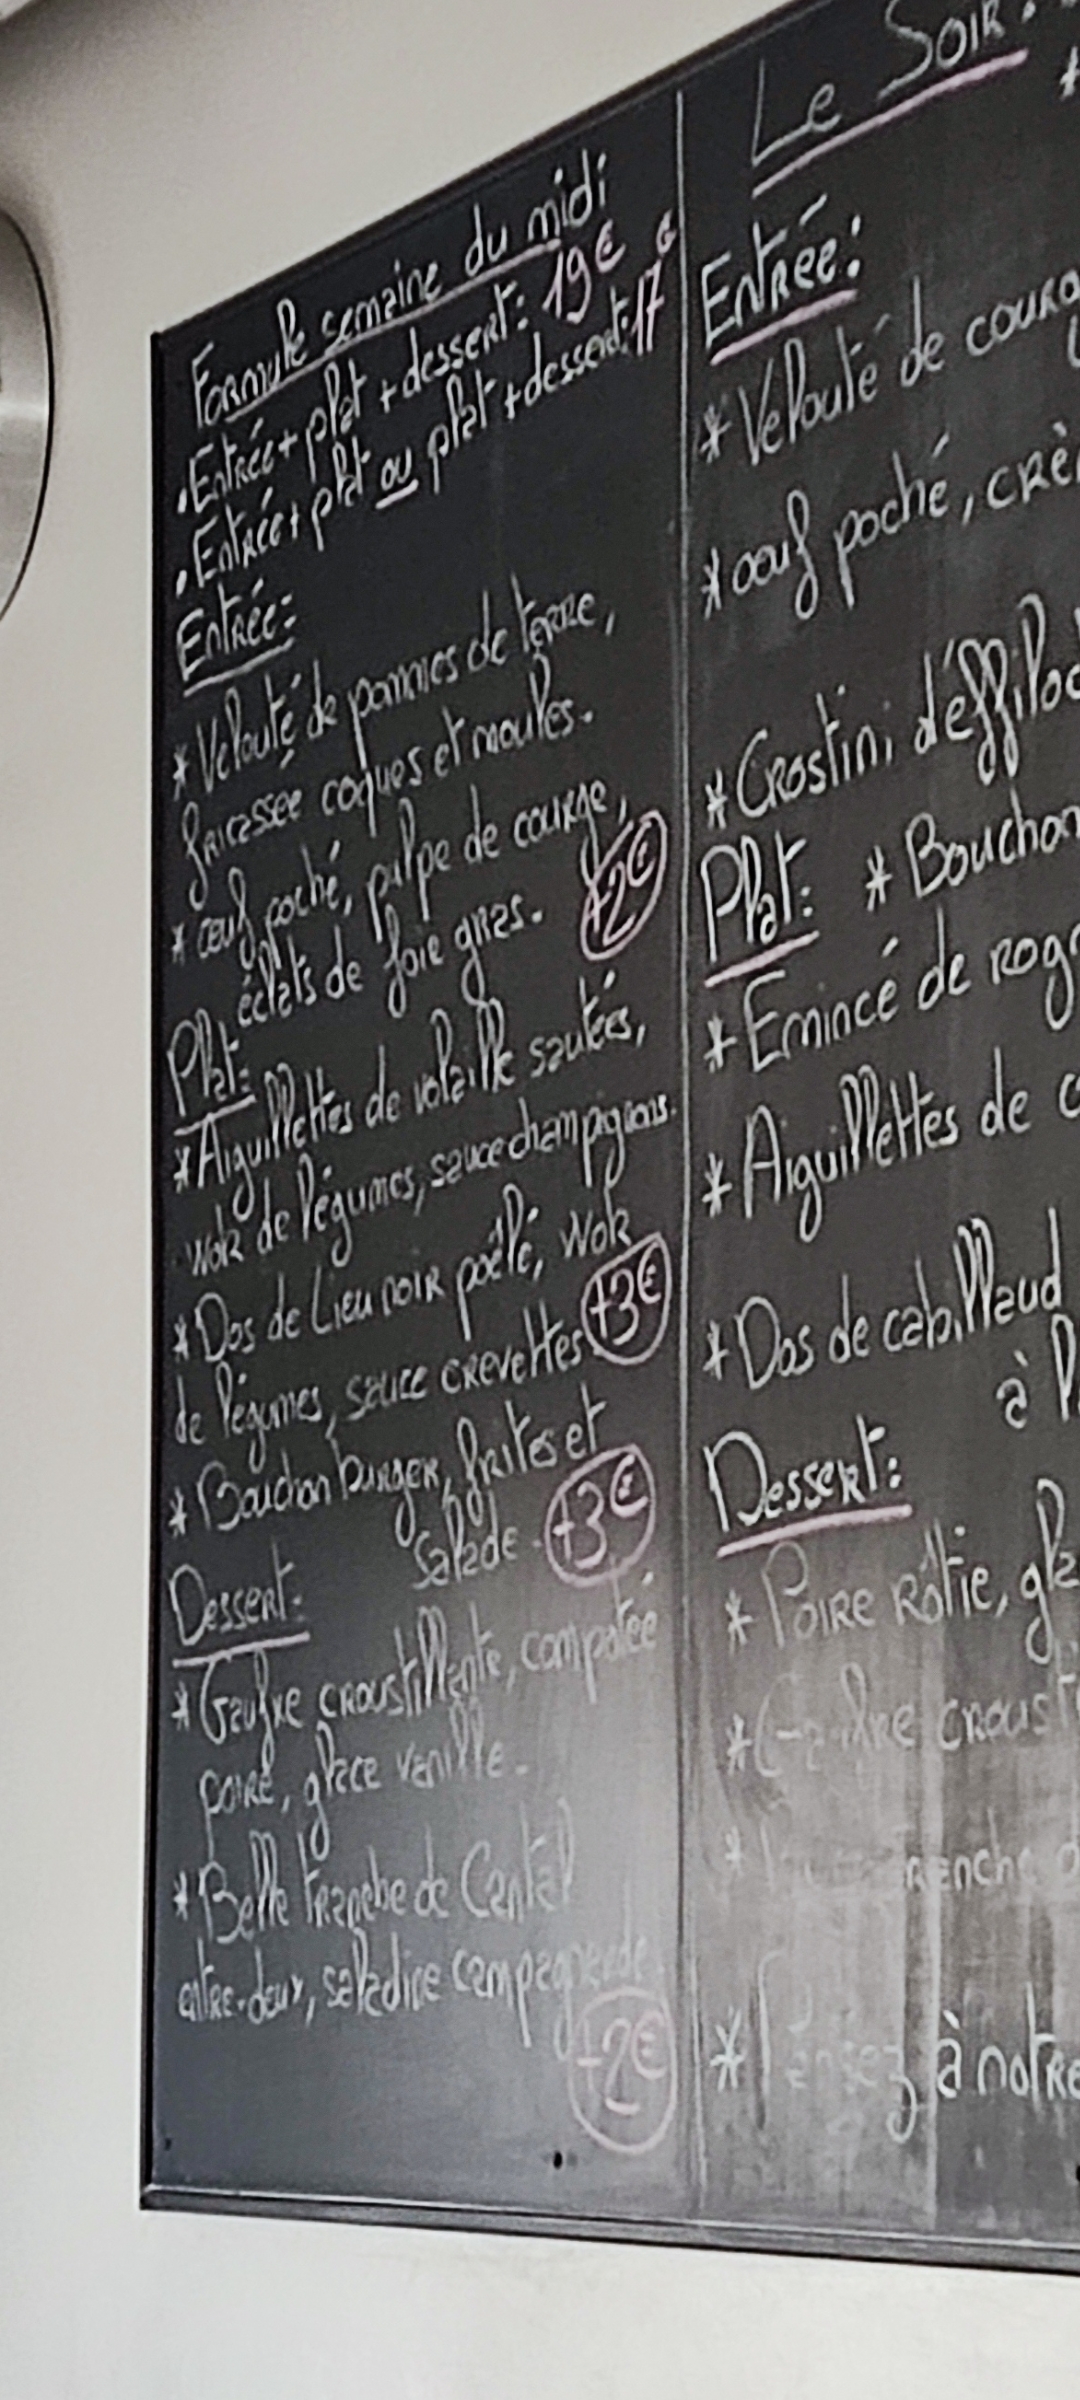 Formule semaine du midi
• Entrée + plat + dessert: 19€
• Entrée + plat ou plat + dessert: 17€
Entrée:
* Velouté de pommes de terre,
fricassée coques et moules.
* œuf poché, pulpe de courge,
éclats de foie gras. +2€
Plat:
* Aiguillettes de volaille sautées,
wok de légumes, sauce champignons.
* Dos de Lieu noir poêlé, wok
de légumes, sauce crevettes +3€
* Bouchon burger, frites et
salade. +3€
Dessert:
* Gaufre croustillante, compotée
poire, glace vanille.
* Belle tranche de Cantal
entre-deux, saladine campagnarde
+2€
Le Soir:
*
Entrée:
* Velouté de
* oeuf poché,
* Crostini
Plat: * Bouchon
* Emincé de
* Aiguillettes de
* Dos de cabillaud
à
Dessert:
* Poire Rôtie,
* Gaufre
*
* à